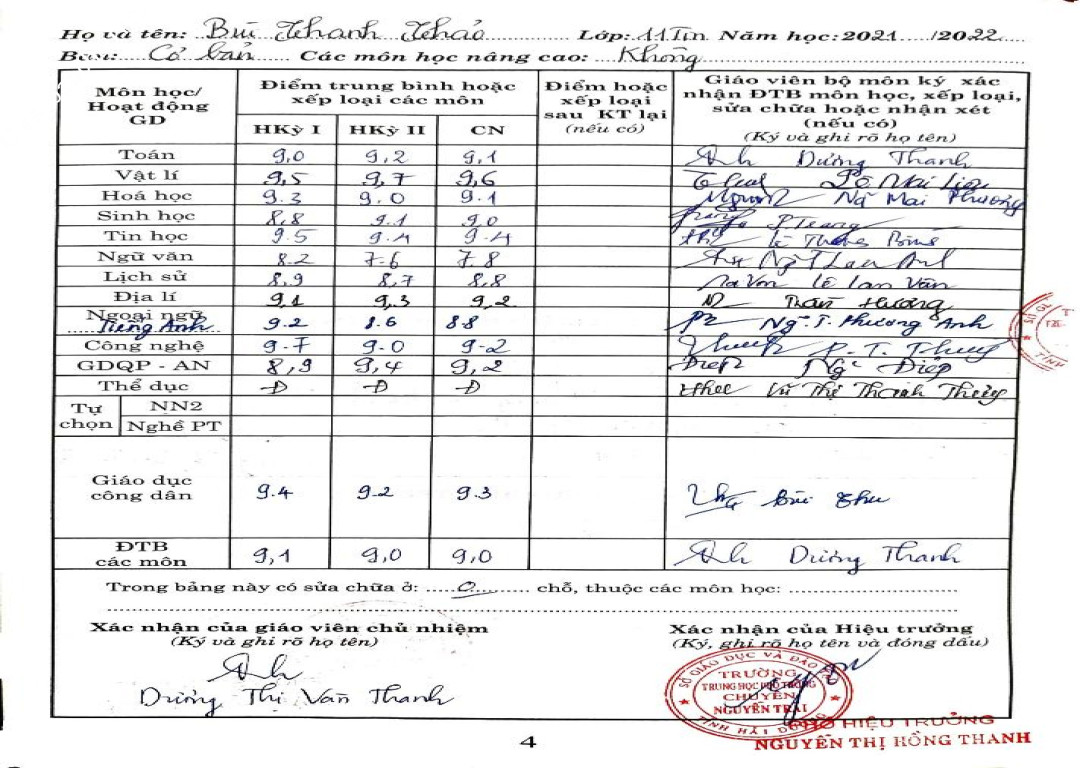 Họ và tên: Bùi Thanh Thảo Lớp: 11 Tin Năm học: 2021 /2022
Ban: Cơ bản Các môn học nâng cao: Không
Môn học/ Hoạt động GD
Điểm trung bình hoặc xếp loại các môn
Điểm hoặc xếp loại sau KT lại (nếu có)
Giáo viên bộ môn ký xác nhận ĐTB môn học, xếp loại, sửa chữa hoặc nhận xét (nếu có) (Ký và ghi rõ họ tên)
HKỳ I HKỳ II CN
Toán 9,0 9,2 9,1 Dương Thanh
Vật lí 9,5 9,7 9,6
Hoá học 9.3 9.0 9.1 Ng Mai Phương
Sinh học 8,8 9.1 9,0 P Trang
Tin học 9.5 9.4 9.4
Ngữ văn 8.2 7.6 7.8 Ng T Lan Anh
Lịch sử 8,9 8,7 8,8 Lê Lan Vân
Địa lí 9,1 9,3 9,2 Trần Hương
Ngoại ngữ
Tiếng Anh 9.2 8.6 8.8 Ng. T. Phương Anh
Công nghệ 9.7 9.0 9.2
GDQP - AN 8,9 9,4 9,2 Điệp
Thể dục Đ Đ Đ Vũ Thị Thanh Thủy
Tự chọn
NN2
Nghề PT
Giáo dục công dân 9.4 9.2 9.3 Bùi Thu
ĐTB các môn 9,1 9,0 9,0 Dương Thanh
Trong bảng này có sửa chữa ở: 0 chỗ, thuộc các môn học:
Xác nhận của giáo viên chủ nhiệm Xác nhận của Hiệu trưởng
(Ký và ghi rõ họ tên) (Ký, ghi rõ họ tên và đóng dấu)
Dương Thị Vân Thanh
SỞ GIÁO DỤC VÀ ĐÀO TẠO
TRƯỜNG
TRUNG HỌC PHỔ THÔNG
CHUYÊN
NGUYỄN TRÃI
TỈNH HẢI DƯƠNG
PHÓ HIỆU TRƯỞNG
NGUYỄN THỊ HỒNG THANH
4